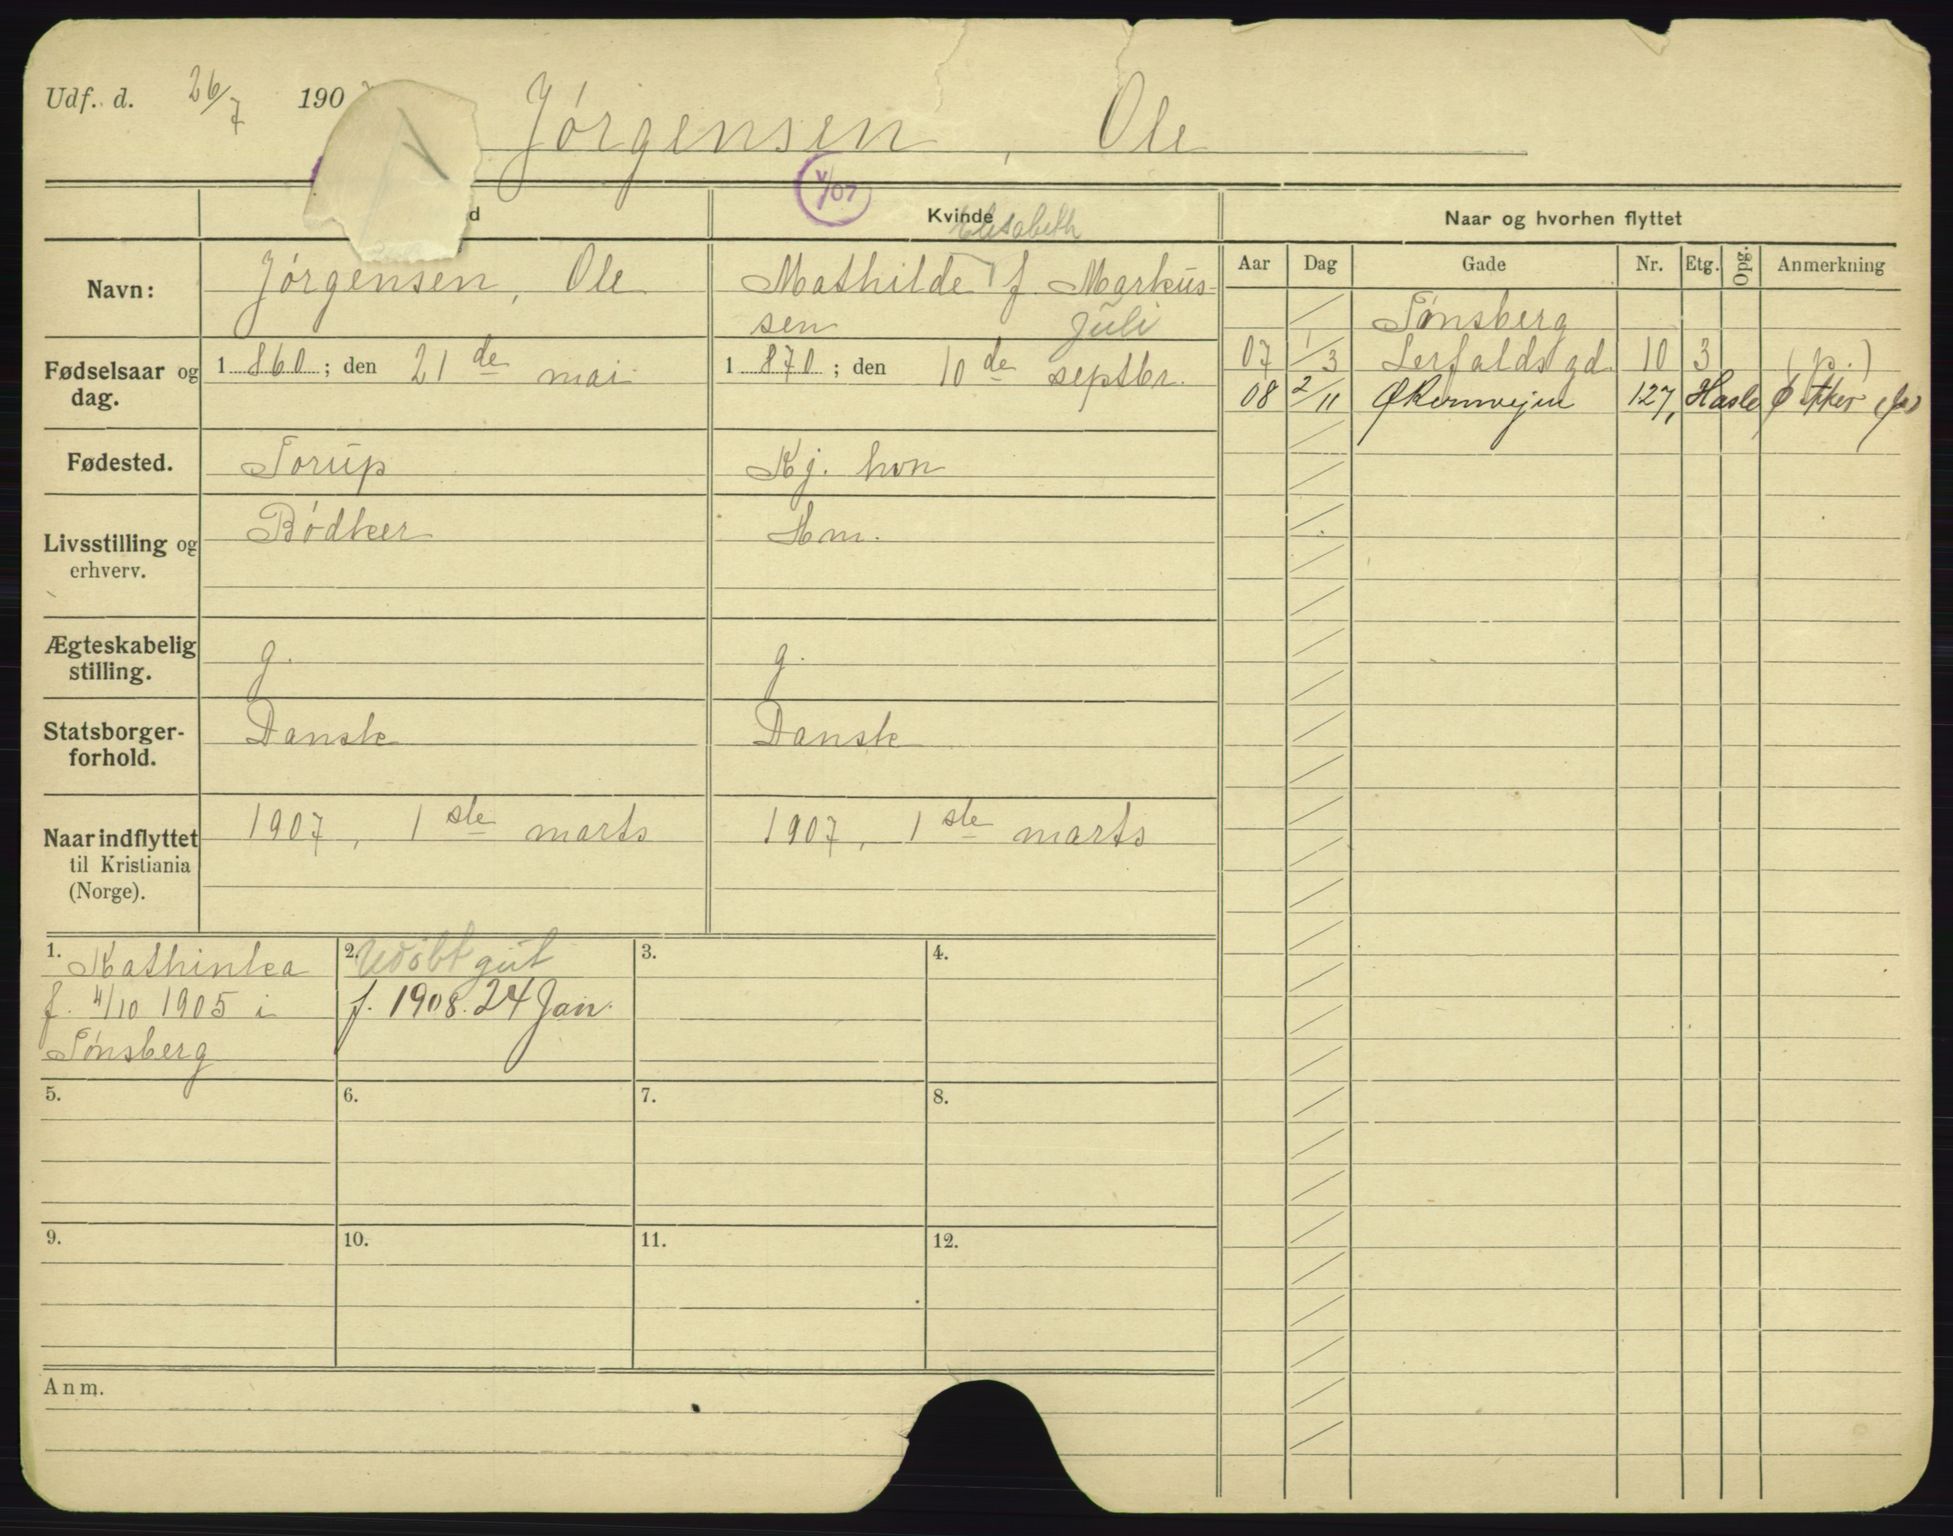 Udf. d. 26/7 190 Jörgensen, Ole
V/07
d Kvinde Naar og hvorhen flyttet
Elisabeth
Aar Dag Gade Nr. Etg. Opg. Anmerkning
Navn: Jörgensen, Ole Mathilde f. Markus-
sen
Juli
Tönsberg
07 1/3 Lerfaldsgd. 10 3 (p.)
08 2/11 Økernvejen 127, Hasle, Ø Aker
Fødselsaar og dag. 1 860 ; den 21de mai 1 870 ; den 10de septbr.
Fødested. Torup Kj. hvn
Livsstilling og erhverv. Bödker Hm.
Ægteskabelig stilling. g. g.
Statsborger-forhold. Dansk Dansk
Naar indflyttet til Kristiania (Norge). 1907, 1ste marts 1907, 1ste marts
1. Kathinka
f. 4/10 1905 i
Tönsberg
2. Udöbt gut
f. 1908. 24 Jan.
3.
4.
5.
6.
7.
8.
9.
10.
11.
12.
Anm.